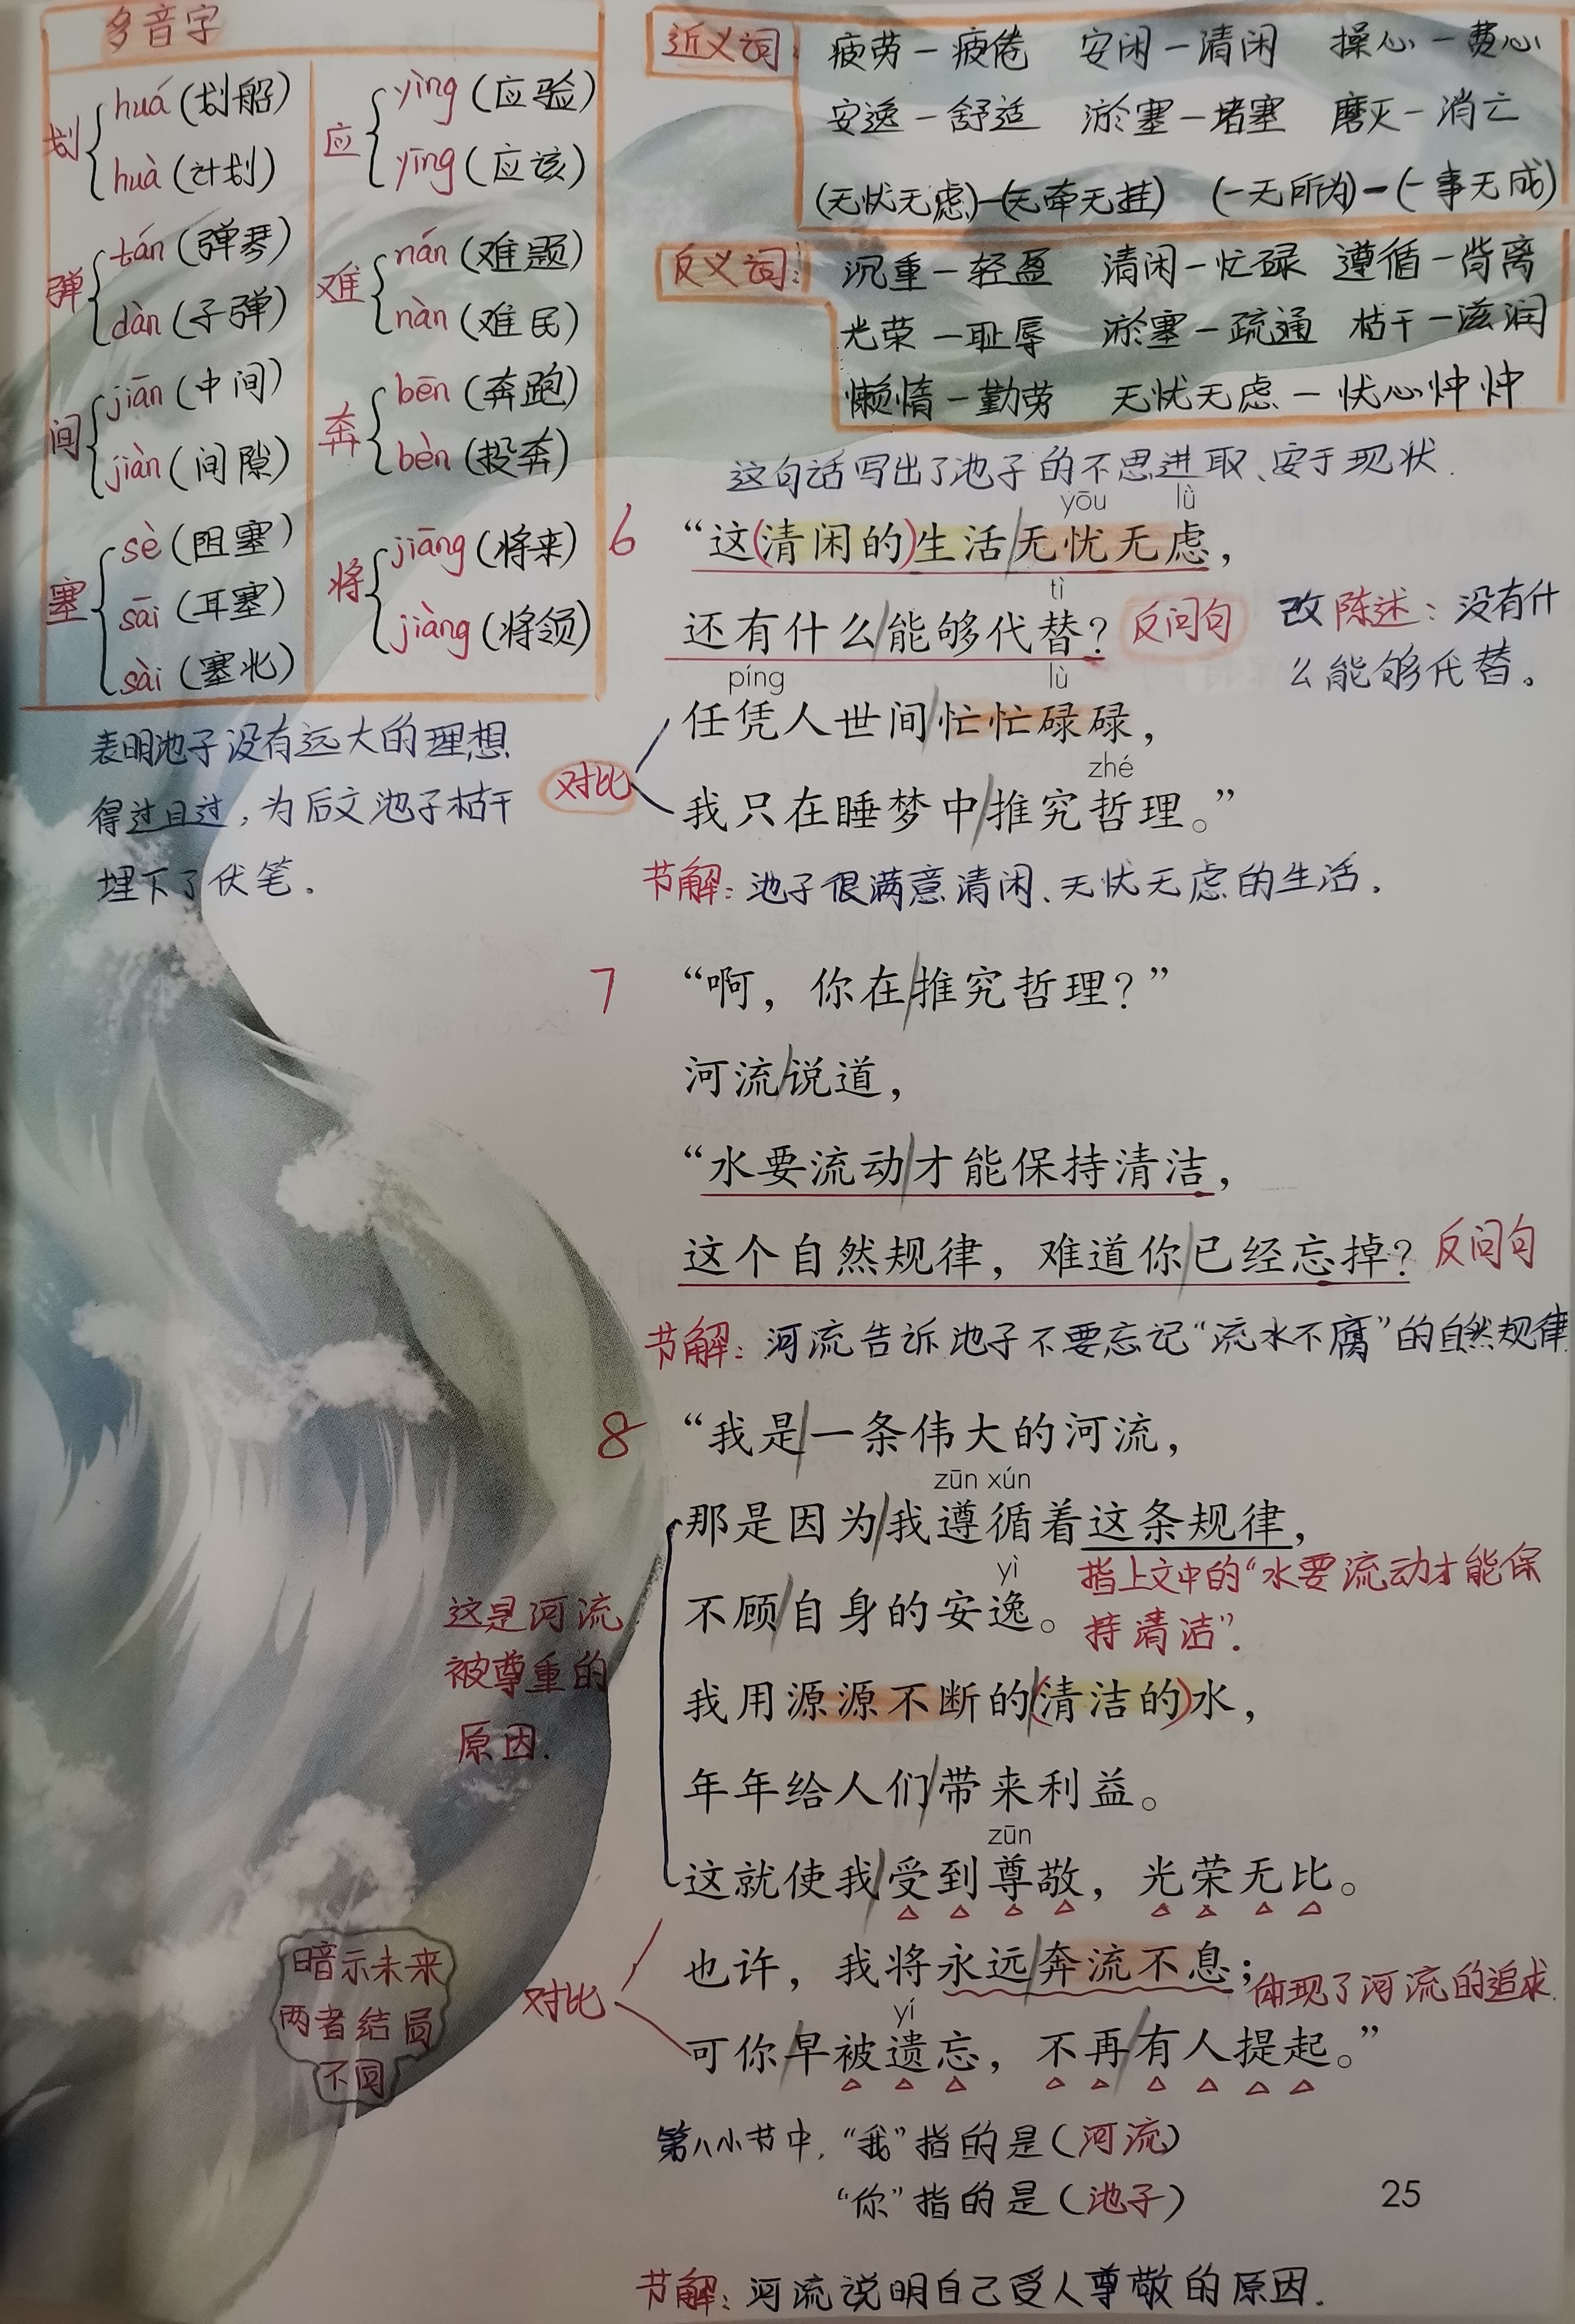 多音字
划 huá(划船) huà(计划)
应 yìng(应验) yīng(应该)
弹 tán(弹琴) dàn(子弹)
难 nán(难题) nàn(难民)
间 jiān(中间) jiàn(间隙)
奔 bēn(奔跑) bèn(投奔)
塞 sè(阻塞) sāi(耳塞) sài(塞北)
将 jiāng(将来) jiàng(将领)
近义词:
疲劳—疲倦 安闲—清闲 操心—费心
安逸—舒适 淤塞—堵塞 磨灭—消亡
(无忧无虑)—(无牵无挂) (一无所为)—(一事无成)
反义词:
沉重—轻盈 清闲—忙碌 遵循—背离
光荣—耻辱 淤塞—疏通 枯干—滋润
懒惰—勤劳 无忧无虑—忧心忡忡
这句话写出了池子的不思进取、安于现状.
yōu lǜ
6 “这(清闲的)生活/无忧无虑,
tì
还有什么/能够代替? 反问句
改陈述:没有什
么能够代替。
píng lù
任凭人世间/忙忙碌碌,
zhé
对比
我只在睡梦中/推究哲理。”
表明池子没有远大的理想
得过且过,为后文池子枯干
埋下了伏笔.
节解:池子很满意清闲、无忧无虑的生活.
7 “啊,你在/推究哲理?”
河流/说道,
“水要流动/才能保持清洁,
这个自然规律,难道你/已经忘掉? 反问句
节解:河流告诉池子不要忘记“流水不腐”的自然规律
8 “我是/一条伟大的河流,
zūn xún
那是因为/我遵循着这条规律,
yì
不顾/自身的安逸。
指上文中的“水要流动才能保
持清洁”.
我用源源不断的/(清洁的)水,
年年给人们/带来利益。
zūn
这就使我/受到尊敬,光荣无比。
这是河流
被尊重的
原因.
也许,我将永远/奔流不息;
体现了河流的追求.
yí
可你早/被遗忘,不再/有人提起。”
对比
暗示未来
两者结局
不同
第八小节中,“我”指的是(河流)
“你”指的是(池子)
25
节解:河流说明自己受人尊敬的原因.